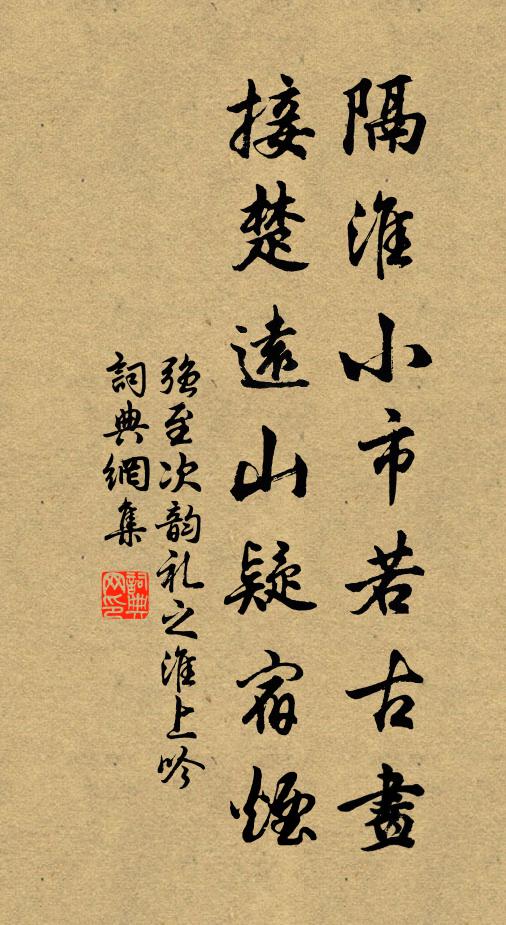 隔淮小市若古畫
接楚遠山疑宿煙
強至次韵礼之淮上吟
詞典網集
詞典网印